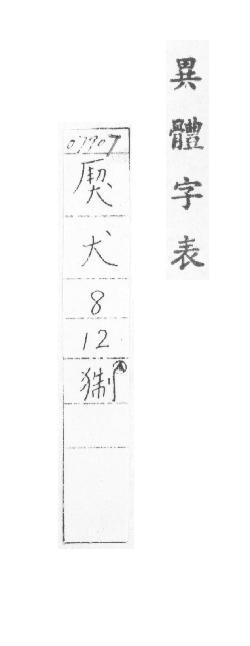 異體字表
07907
犬
8
12
猘